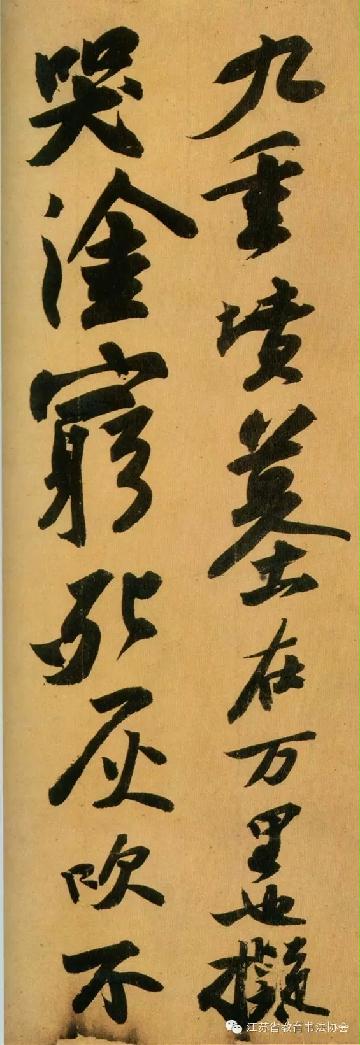 九重墳墓在万里也擬
哭塗窮死灰吹不
江苏省教育书法协会